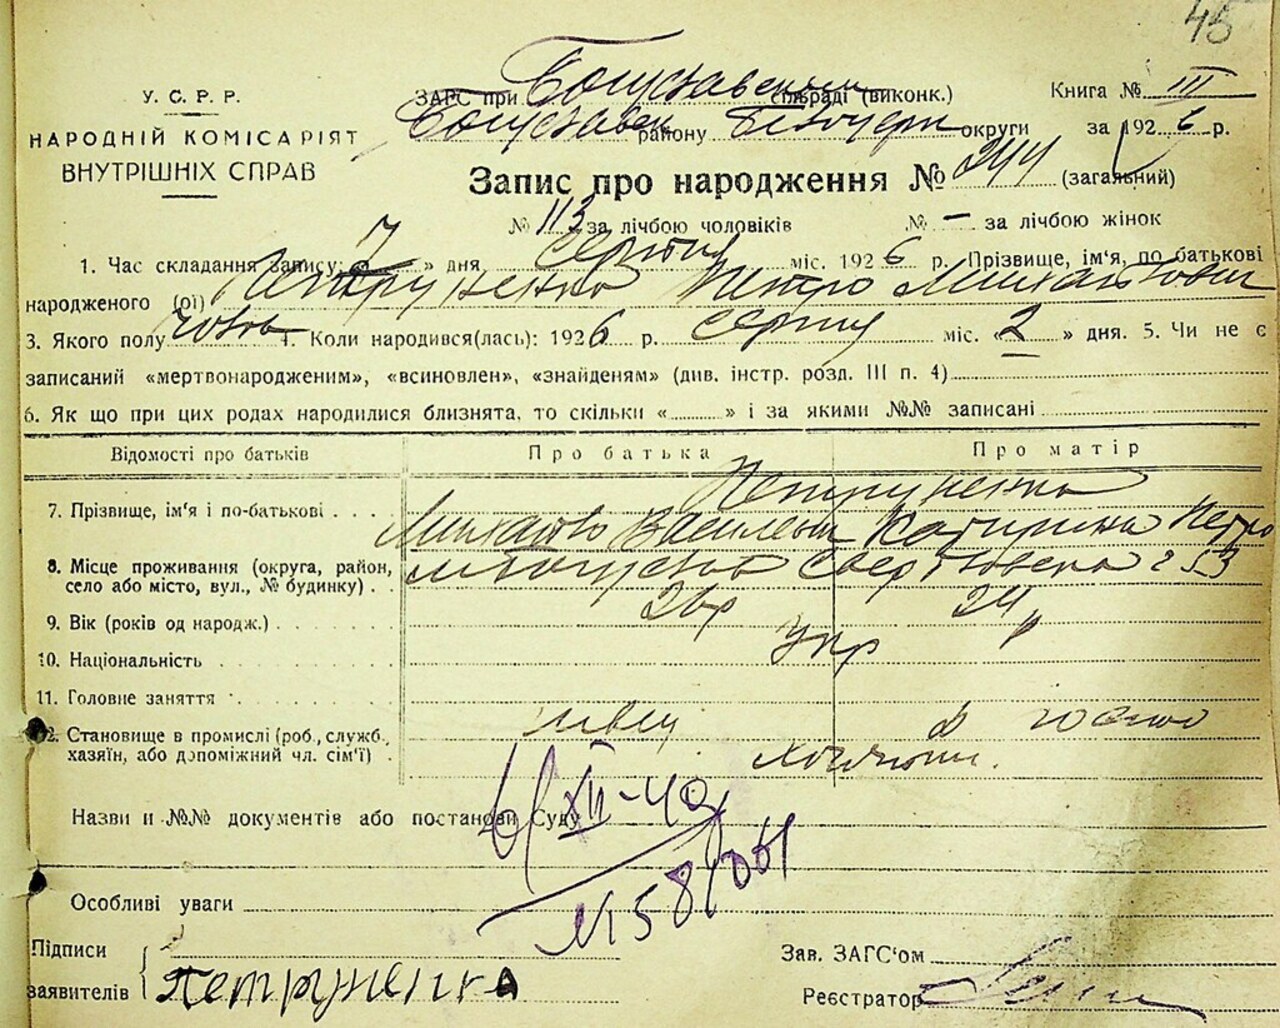 45
У. С. Р. Р.
НАРОДНІЙ КОМІСАРІЯТ
ВНУТРІШНІХ СПРАВ
ЗАГС при Богуславськім сільраді (виконк.)
Богуславськ району Білоцерк округи
Книга № III
за 1926 р.
Запис про народження № 244 (загальний)
№ 113 за лічбою чоловіків № — за лічбою жінок
1. Час складання запису: « 7 » дня Серпня міс. 1926 р. Прізвище, ім'я, по батькові
народженого (ої) Петруненко Петро Михайлович
3. Якого полу чолов 4. Коли народився(лась): 1926 р. Серпня міс. « 2 » дня. 5. Чи не є
записаний «мертвонародженим», «всиновлен», «знайденям» (див. інстр. розд. III п. 4)
6. Як що при цих родах народилися близнята, то скільки « » і за якими №№ записані
Відомості про батьків Про батька Про матір
7. Прізвище, ім'я і по-батькові Петруненко
Михайло Василев Катерина Петро
8. Місце проживання (округа, район,
село або місто, вул., № будинку) м Богуслав 53
9. Вік (років од народж.) 26р 24р
10. Національність Укр
11. Головне заняття
12. Становище в промислі (роб., служб.
хазяїн, або допоміжний чл. сім'ї) швець
Назви и №№ документів або постанови Суду
6/XII-49
Особливі уваги
Підписи
заявителів Петруненко
Зав. ЗАГС'ом
Реєстратор